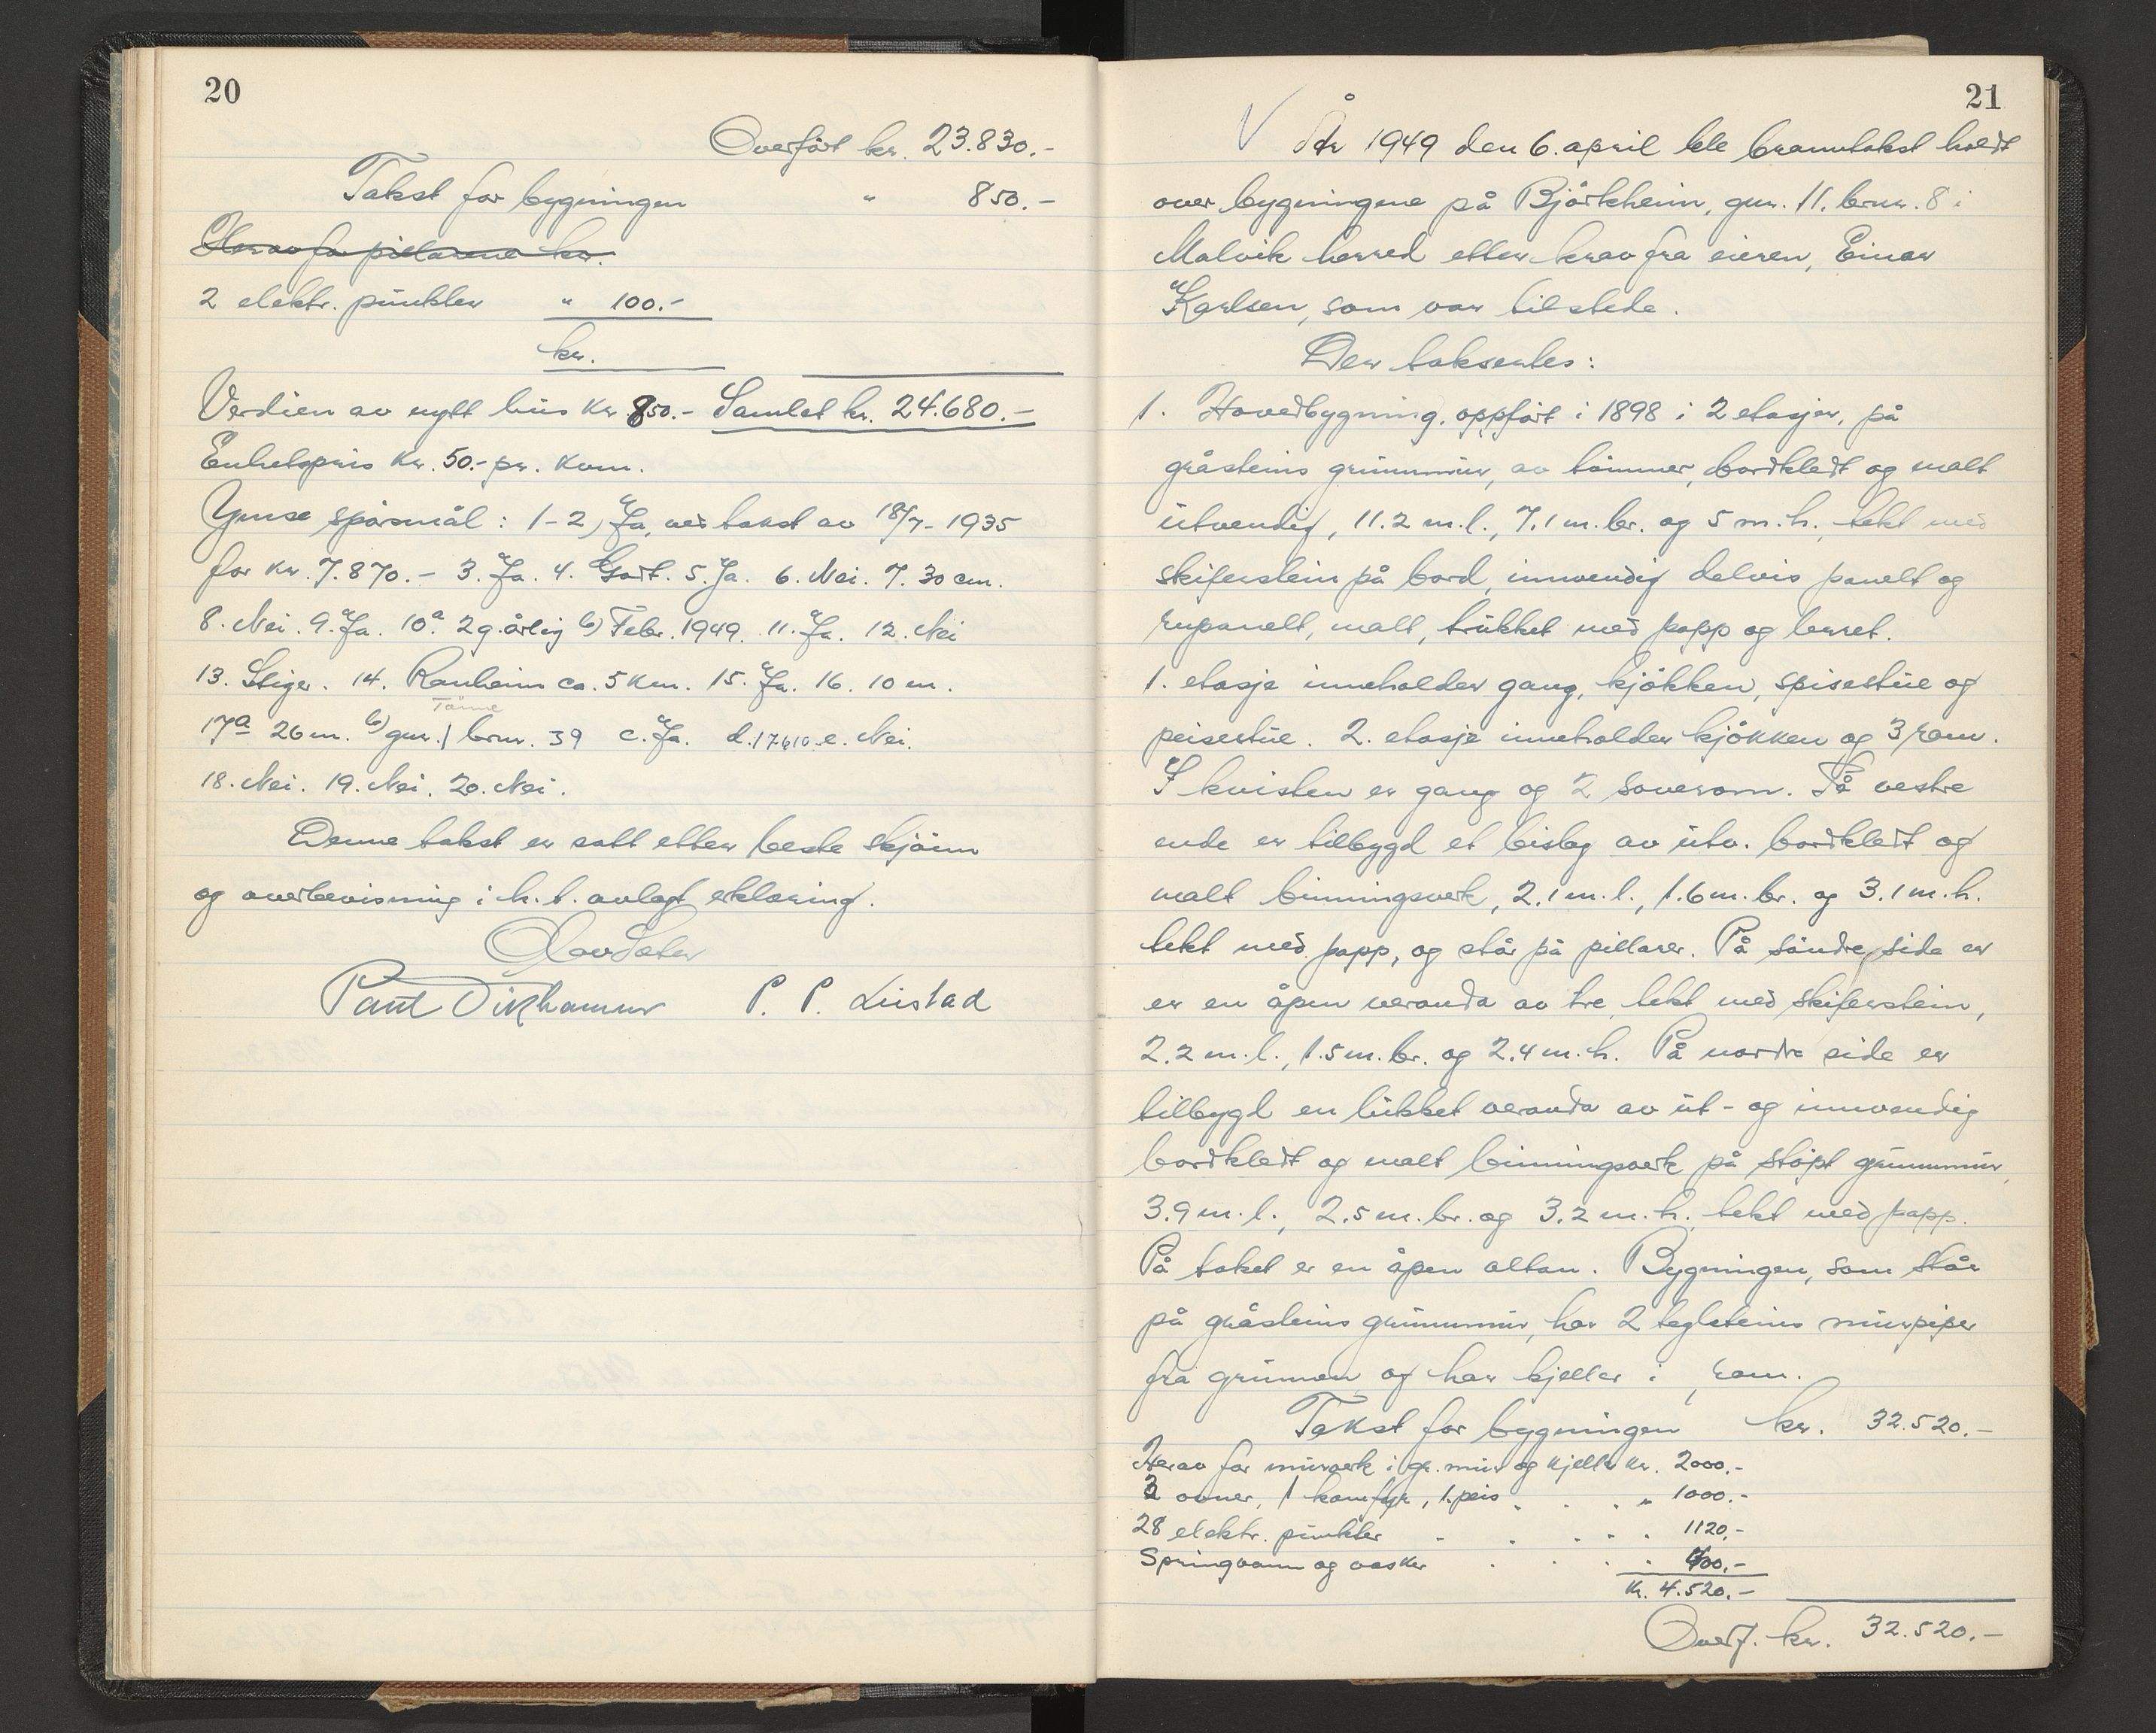 20
Overført kr. 23.830.-
Takst for bygningen " 850.-
Herav for pillarene kr.
2 elektr. punkter " 100.-
kr.
Verdien av nytt hus kr. 850.- Samlet kr. 24.680.-
Enhetspris kr. 50.- pr. kvm.
Ymse spørsmål: 1-2) Ja, ved takst av 18/7-1935
for kr. 7.870.- 3. Ja. 4. Godt. 5. Ja. 6. Nei. 7. 30 cm.
8. Nei. 9. Ja. 10a. 2 g. årlig b) Febr. 1949. 11. Ja. 12. Nei
13. Stiger. 14. Ranheim ca. 5 km. 15. Ja. 16. 10 m.
17a 26 m. b) gnr. 1 brnr. 39 c. Ja. d. 17610 e. Nei.
18. Nei. 19. Nei. 20. Nei.
Denne takst er satt etter beste skjønn
og overbevisning i h. t. avlagt erklæring.
P. P. Lüstad
21
År 1949 den 6. april ble branntakst holdt
over bygningene på Bjørkheim, gnr. 11. brnr. 8 i
Malvik herred etter krav fra eieren, Einar
Karlsen, som var tilstede.
Der taksertes:
1. Hovedbygning, oppført i 1898 i 2 etasjer, på
gråsteins grunnmur, av tømmer, bordkledt og malt
utvendig, 11.2 m. l., 7.1 m. br. og 5 m. h., tekt med
skiferstein på bord, innvendig delvis panelt og
rupanelt, malt, trukket med papp og lerret.
1. etasje inneholder gang, kjøkken, spisestue og
peisestue. 2. etasje inneholder kjøkken og 3 rom.
I kvisten er gang og 2 soverom. På vestre
ende er tilbygd et bislag av utv. bordkledt og
malt binningsverk, 2.1 m. l., 1.6 m. br. og 3.1 m. h.
tekt med papp, og står på pillarer. På søndre side er
er en åpen veranda av tre, tekt med skiferstein,
2.2 m. l., 1.5 m. br. og 2.4 m. h. På nordre side er
tilbygd en lukket veranda av ut- og innvendig
bordkledt og malt binningsverk på støpt grunnmur,
3.9 m. l., 2.5 m. br. og 3.2 m. h., tekt med papp.
På taket er en åpen altan. Bygningen, som står
på gråsteins grunnmur, har 2 teglsteins murpiper
fra grunnen og har kjeller i 1 rom.
Takst for bygningen kr. 32.520.-
Herav for murverk i gr. mur og kjeller kr. 2000.-
3 ovner, 1 komfyr, 1 peis " 1000.-
28 elektr. punkter " 1120.-
Springvann og vasker " 400.-
Kr. 4.520.-
Overf. kr. 32.520.-